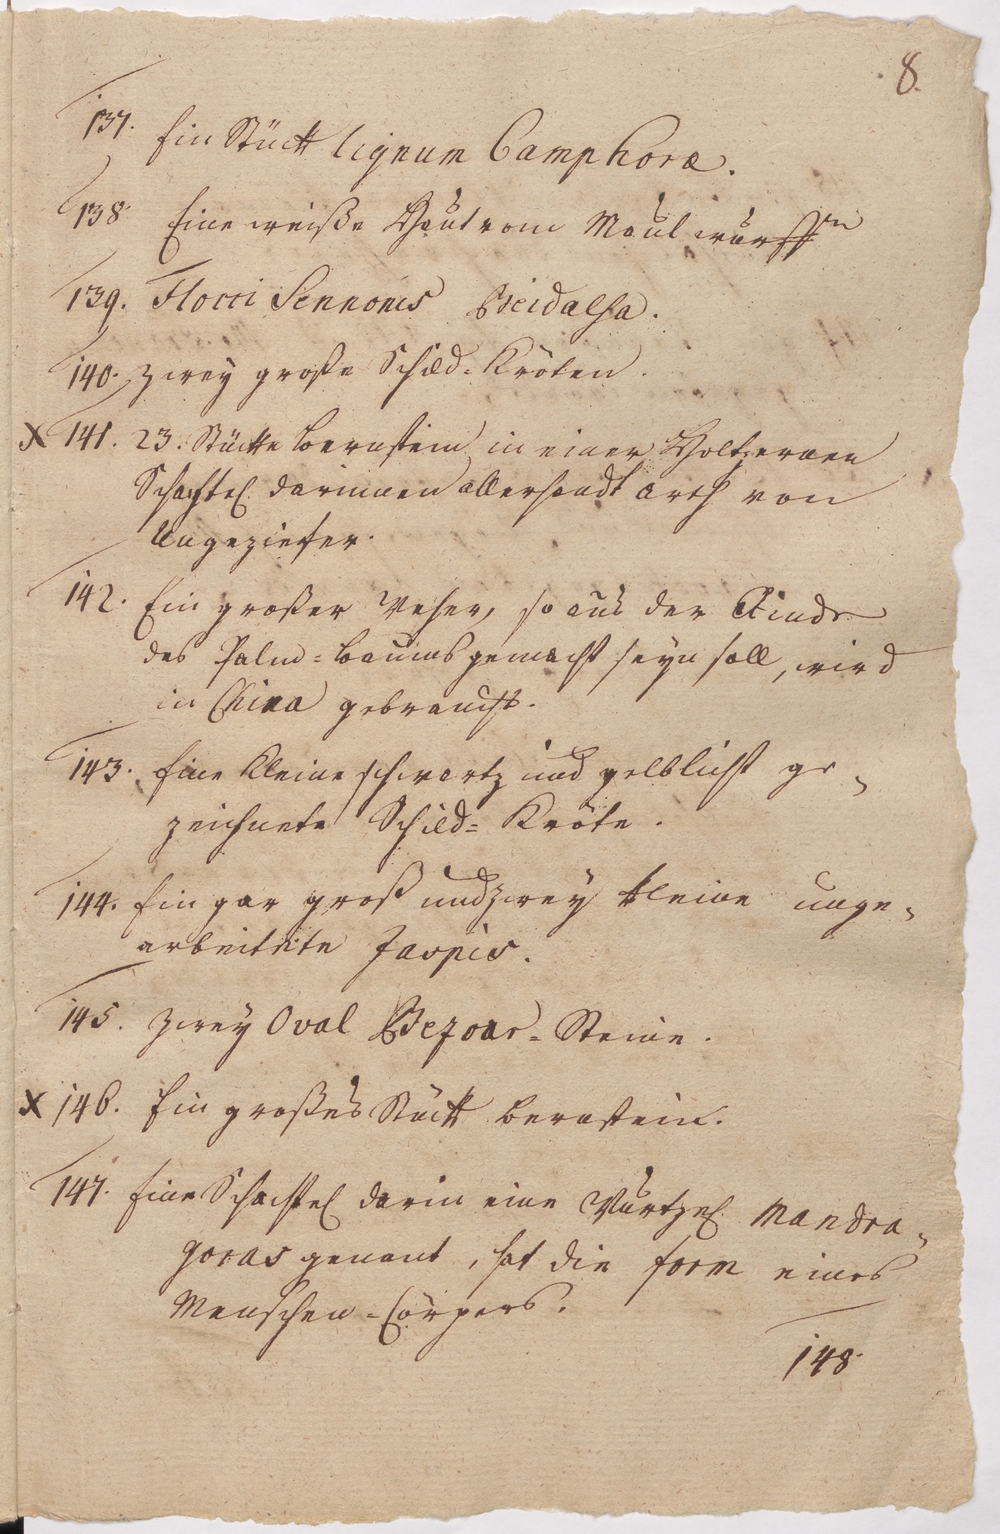 8.
137. Ein Stück lignum Camphoræ.
138. Eine weiße Haut vom Maulwurffen
139. Flocci Sennonis Beidalsa.
140. Zwey große Schild=Kröten.
X 141. 23. Stücke Bernstein in einer Holtzernen
Schachtel darinnen allerhandt arth von
Ungeziefer.
142. Ein großer Weher, so aus der Rinde
des Palm=baums gemacht seyn soll, wird
in China gebraucht.
143. Eine kleine schwartz und gelblicht ge-
zeichnete Schild=Kröte.
144. Ein gar groß und zwey kleine unge-
arbeitete Jaspis.
145. Zwey Oval Bezoar=Steine.
X 146. Ein großes Stück Bernstein.
147. Eine Schachtel darin eine Wurtzel Mandra-
goras genant, hat die form eines
Menschen=Cörpers.
148.